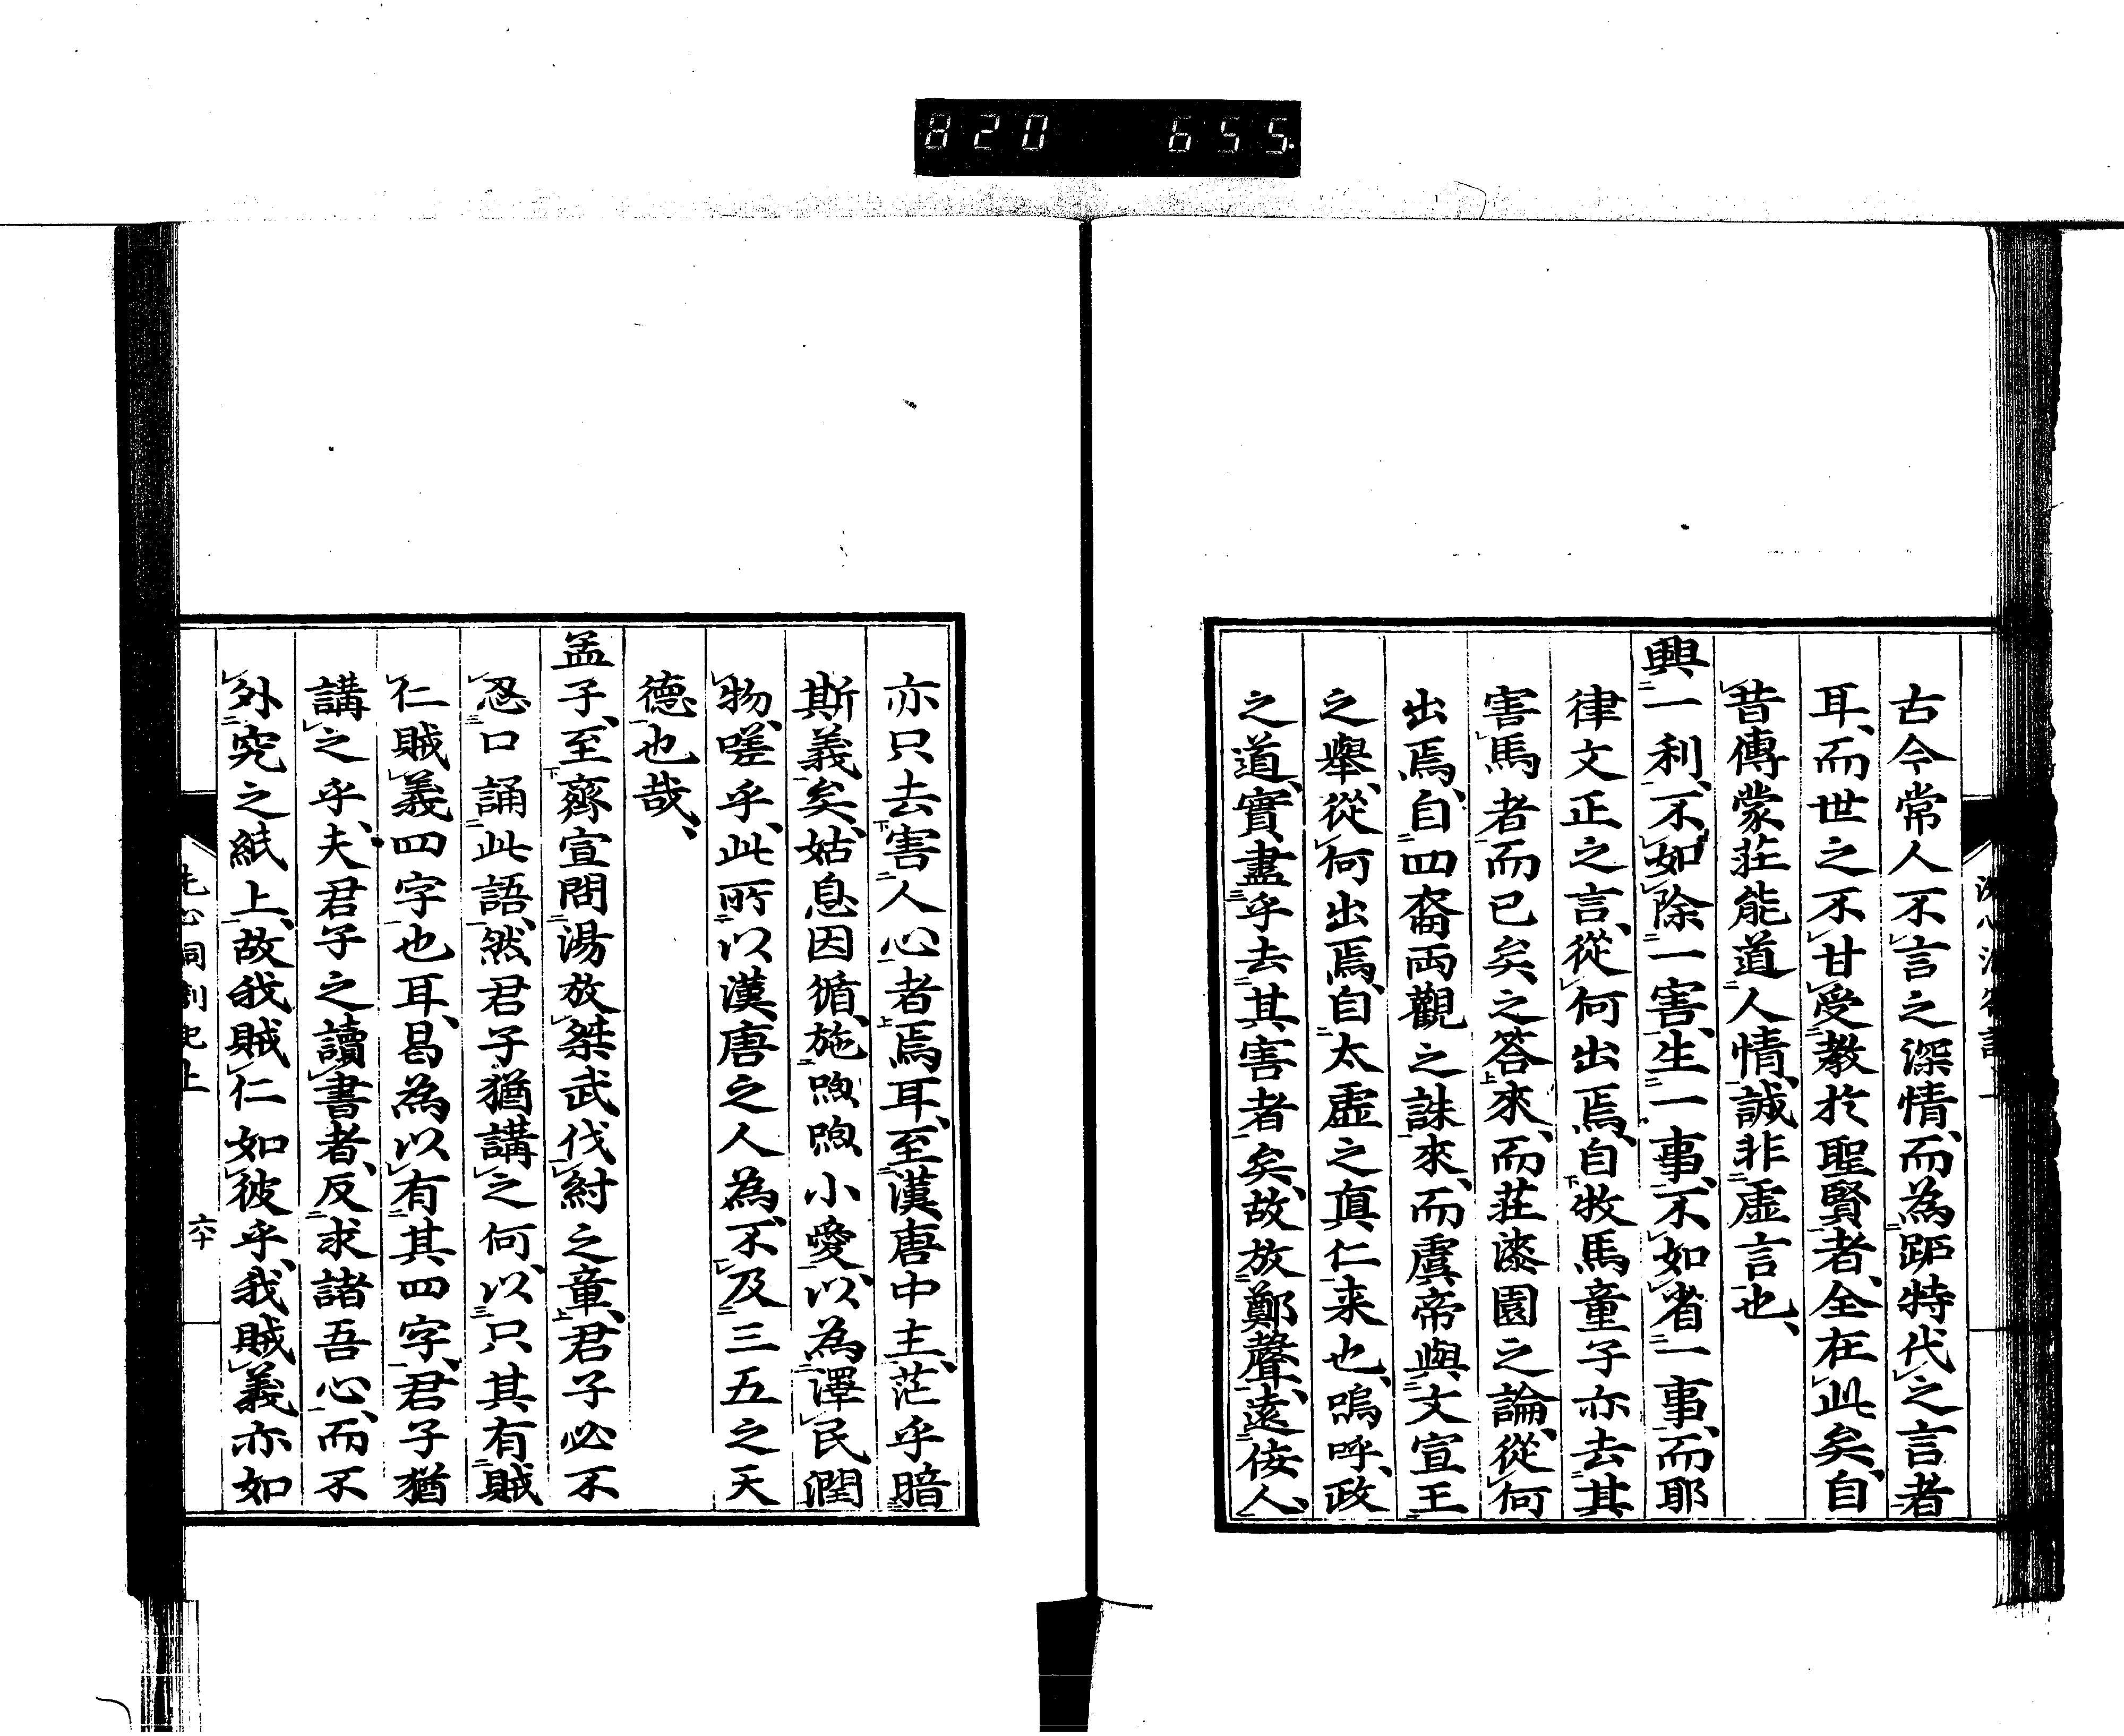 820 655
古今常人不言之深情、而為距特代之言者
耳、而世之不甘受教於聖賢者、全在此矣、自
昔傳蒙莊能道人情、誠非虛言也、
興一利、不如除一害、生一事、不如省一事、而耶
律文正之言、從何出焉、自牧馬童子亦去其
害馬者而已矣之答來、而莊漆園之論、從何
出焉、自四裔兩觀之誅來、而虞帝與文宣王
之舉、從何出焉、自太虛之真仁来也、嗚呼、政
之道、實盡乎去其害者矣、故放鄭聲、遠佞人、
亦只去害人心者焉耳、至漢唐中主、茫乎暗
斯義矣、姑息因循、施煦煦小愛、以為澤民潤
物、嗟乎、此所以漢唐之人為不及三五之天
德也哉、
孟子、至齊宣問湯放桀武伐紂之章、君子必不
忍口誦此語、然君子猶講之何、以只其有賊
仁賊義四字也耳、曷為以有其四字、君子猶
講之乎、夫君子之讀書者、反求諸吾心、而不
外究之紙上、故我賊仁如彼乎、我賊義亦如
洗心洞劄記上
六十